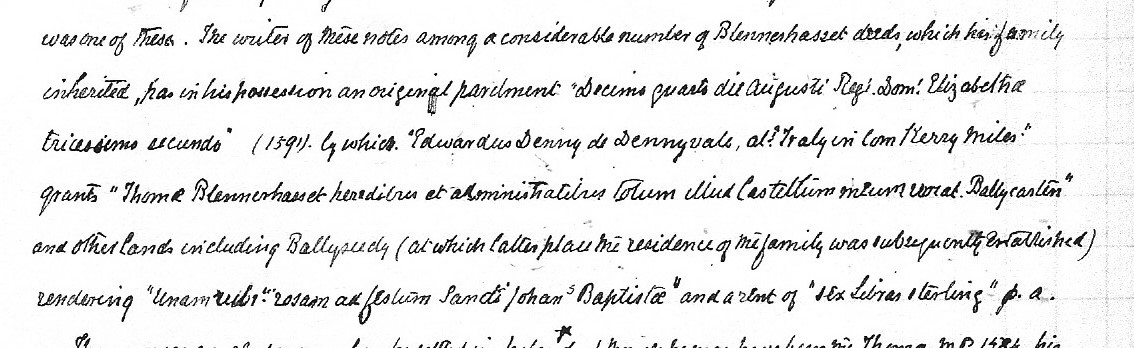 was one of these. The writer of these notes among a considerable number of Blennerhasset deeds, which his family
inherited, has in his possession an original parchment "Decimo quarto die Augusti Regi. Dom. Elizabethæ
tricessimo secundo" (1591). by which. "Edwardus Denny de Dennyvale, als Traly in Com Kerry Miles"
grants "Thomæ Blennerhasset heredibus et administratibus totum illud Castellum meum vocat. Ballycasten"
and other lands including Ballyseedy (at which latter place the residence of the family was subsequently established)
rendering "Unam rosam ad festum Sancti Johans Baptistæ" and a rent of "sex Libras sterling" p. a.
Thomas M.P. 1584 his